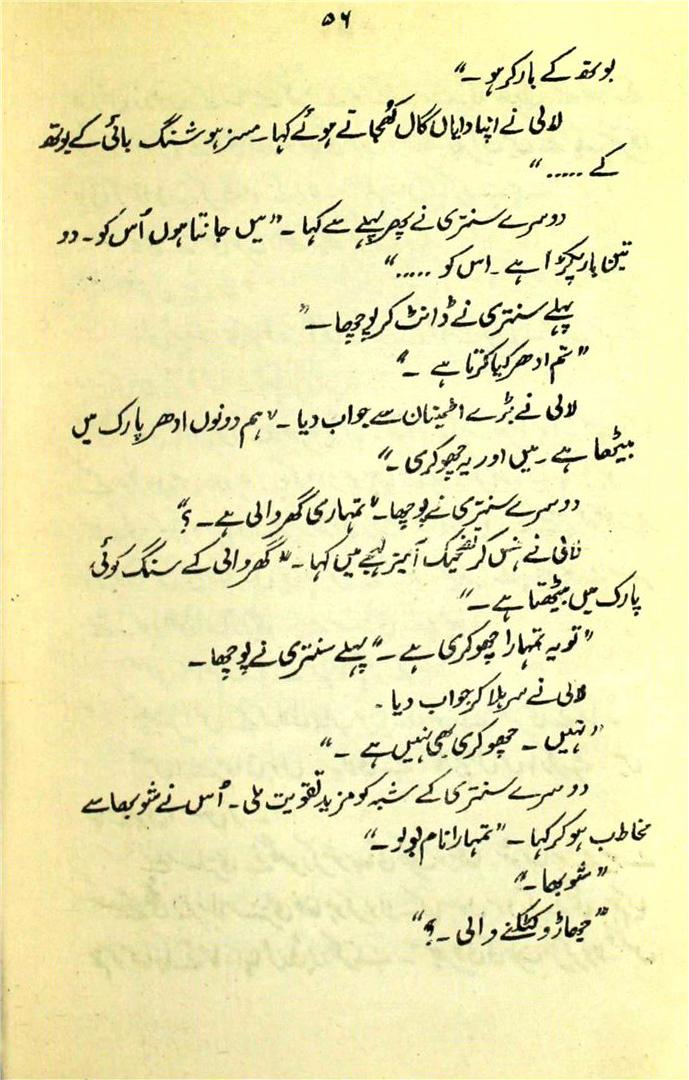 ۵۶
بوتھ کے بار کر ہو ۔“
لالی نے اپنا دایاں گال کھُجاتے ہوئے کہا۔ مسز ہوشنگ بائی کے بوتھ
کے ..... “
دوسرے سنتری نے پھر پہلے سے کہا ۔ ”میں جانتا ہوں اُس کو ۔ دو
تین بار پکڑا ہے ۔ اس کو ..... “
پہلے سنتری نے ڈانٹ کر پوچھا ۔ ”
”تم ادھر کیا کرتا ہے ۔“
لالی نے بڑے اطمینان سے جواب دیا ۔ ”ہم دونوں ادھر پارک میں
بیٹھا ہے ۔ میں اور یہ چھوکری ۔“
دوسرے سنتری نے پوچھا۔ ”تمہاری گھر والی ہے ۔ ؟“
لالی نے ہنس کر تضحیک آمیز لہجے میں کہا ۔ ” گھر والی کے سنگ کوئی
پارک میں بیٹھتا ہے ۔“
”تو یہ تمہارا چھوکری ہے ۔“ پہلے سنتری نے پوچھا۔
لالی نے سر ہلا کر جواب دیا ۔
”نہیں ۔ چھوکری بھی نہیں ہے ۔ “
دوسرے سنتری کے شبہ کو مزید تقویت ملی ۔ اُس نے شوبھا سے
مخاطب ہو کر کہا ۔ ”تمہارا نام بولو ۔“
”شوبھا ۔“
”جھاڑو کٹکنے والی ۔ ؟“